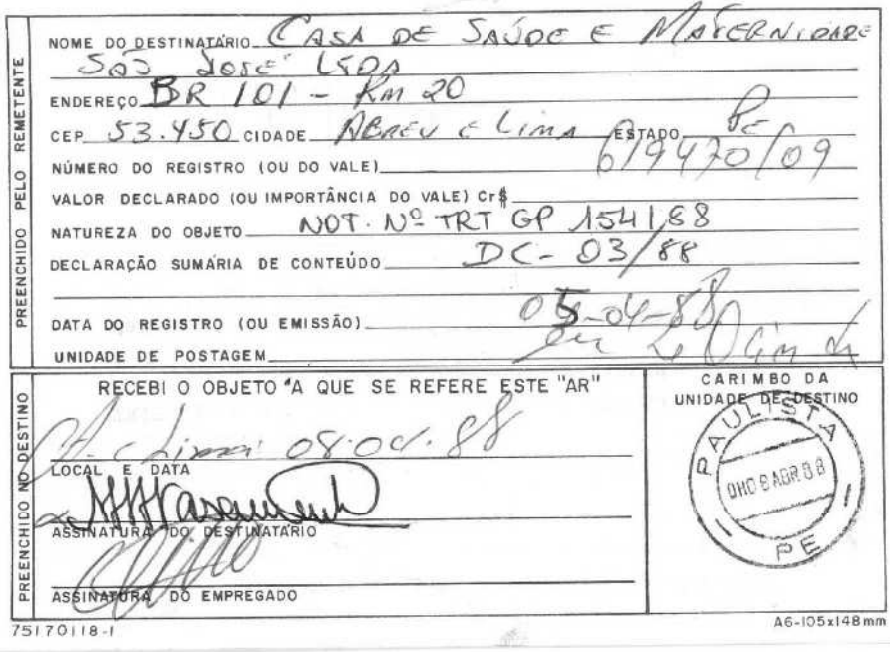 PREENCHIDO PELO REMETENTE
NOME DO DESTINATÁRIO CASA DE SAÚDE E MATERNIDADE
SÃO JOSÉ LTDA
ENDEREÇO BR 101 - Km 20
CEP 53.450 CIDADE ABREU E LIMA ESTADO PE
NÚMERO DO REGISTRO (OU DO VALE) 619470/09
VALOR DECLARADO (OU IMPORTÂNCIA DO VALE) Cr$
NATUREZA DO OBJETO NOT. Nº TRT GP 154/88
DECLARAÇÃO SUMÁRIA DE CONTEÚDO DC - 03/88
DATA DO REGISTRO (OU EMISSÃO) 05-04-88
UNIDADE DE POSTAGEM
PREENCHIDO NO DESTINO
RECEBI O OBJETO "A QUE SE REFERE ESTE "AR"
Lima 08.04.88
LOCAL E DATA
ASSINATURA DO DESTINATÁRIO
ASSINATURA DO EMPREGADO
CARIMBO DA
UNIDADE DE DESTINO
PAULISTA
8 ABR 88
PE
75170118-1
A6-105x148mm